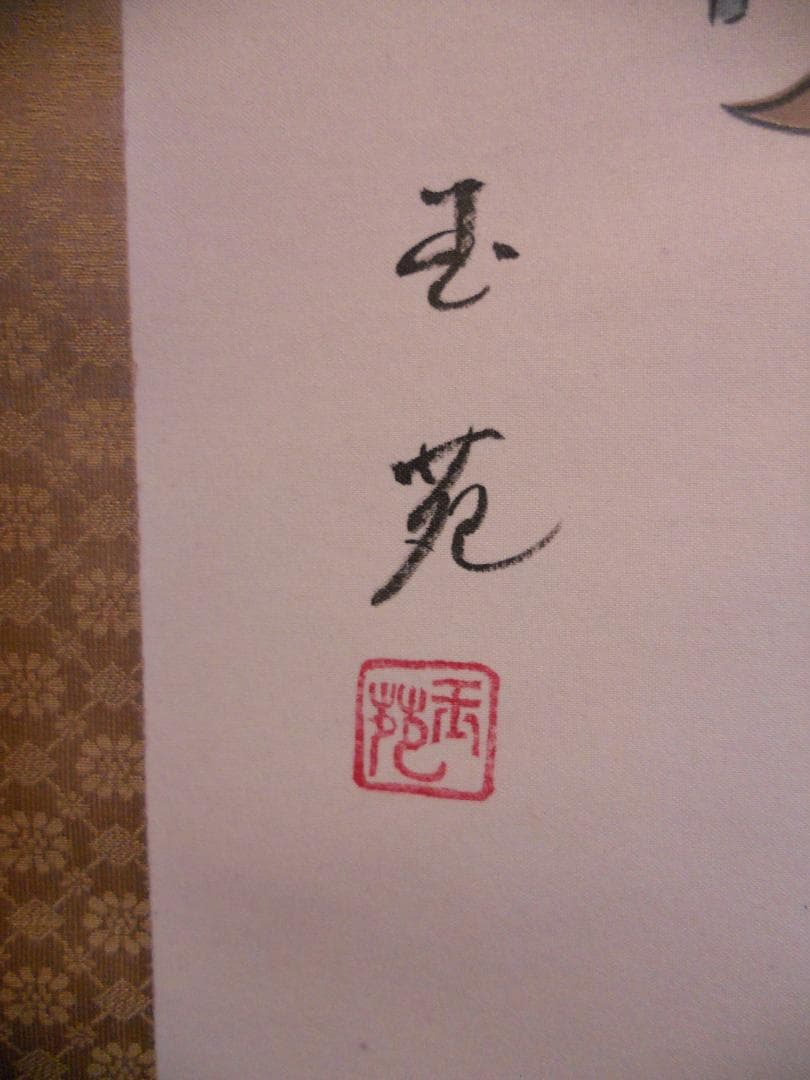 玉苑
玉苑